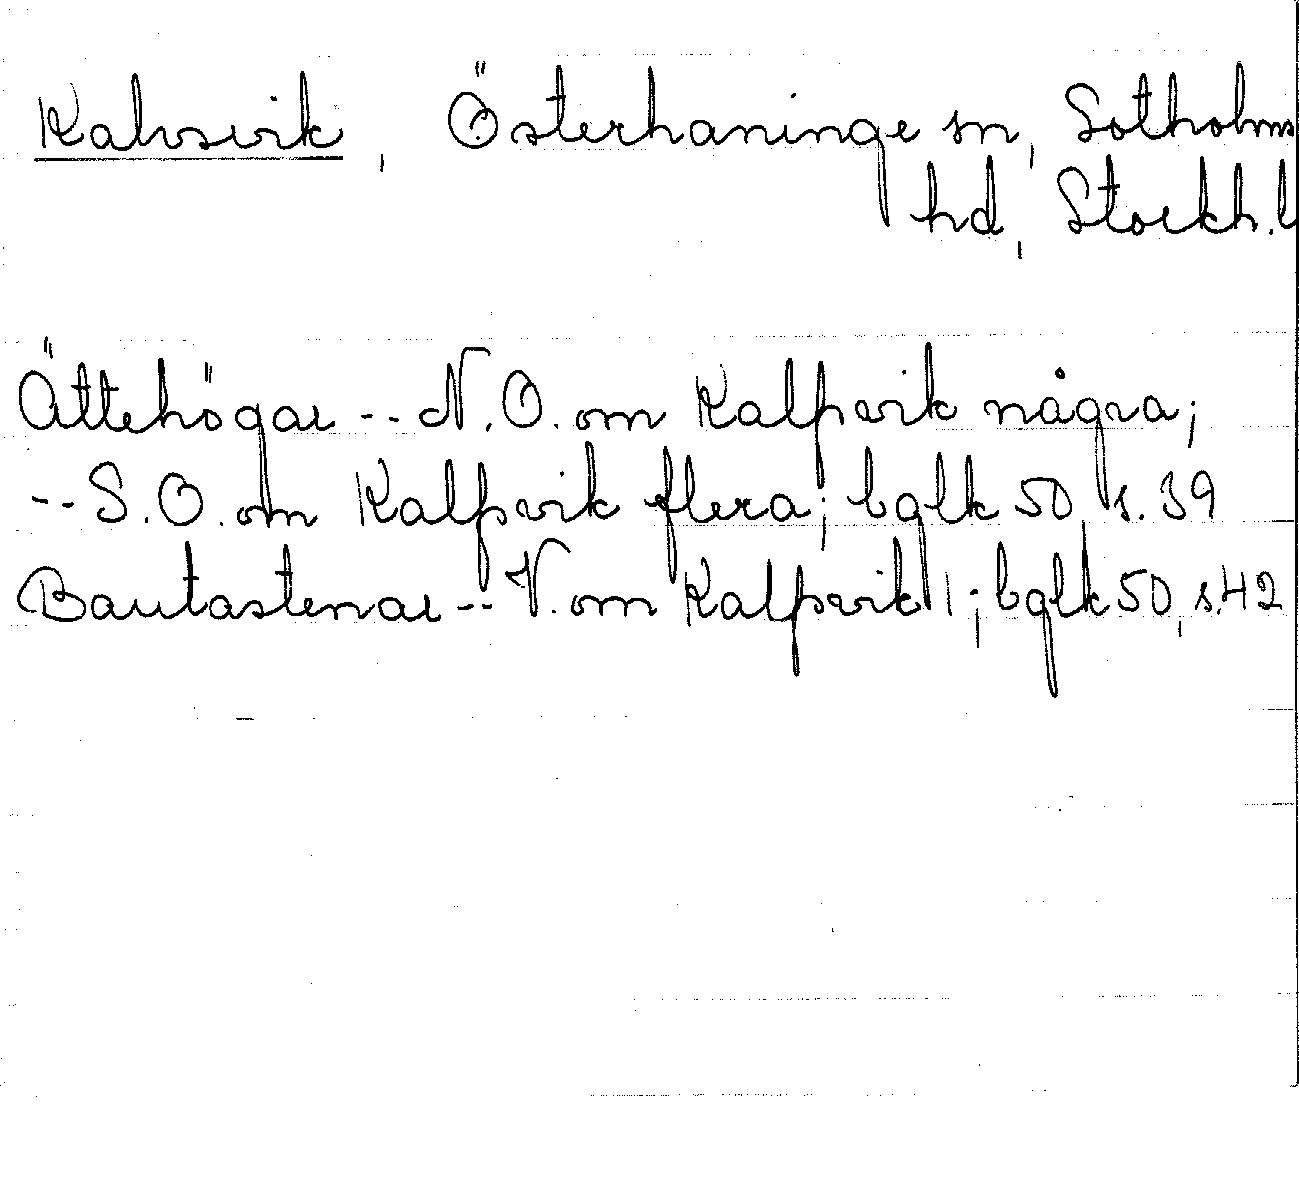 Kalvsvik, Österhaninge sn, Sotholms
hd, Stockh. l
Ättehögar -- N.O. om Kalfsvik några;
-- S.O. om Kalfsvik flera; bglk 50, s. 39
Bautastenar -- V. om Kalfsvik 1; bglk 50, s. 42